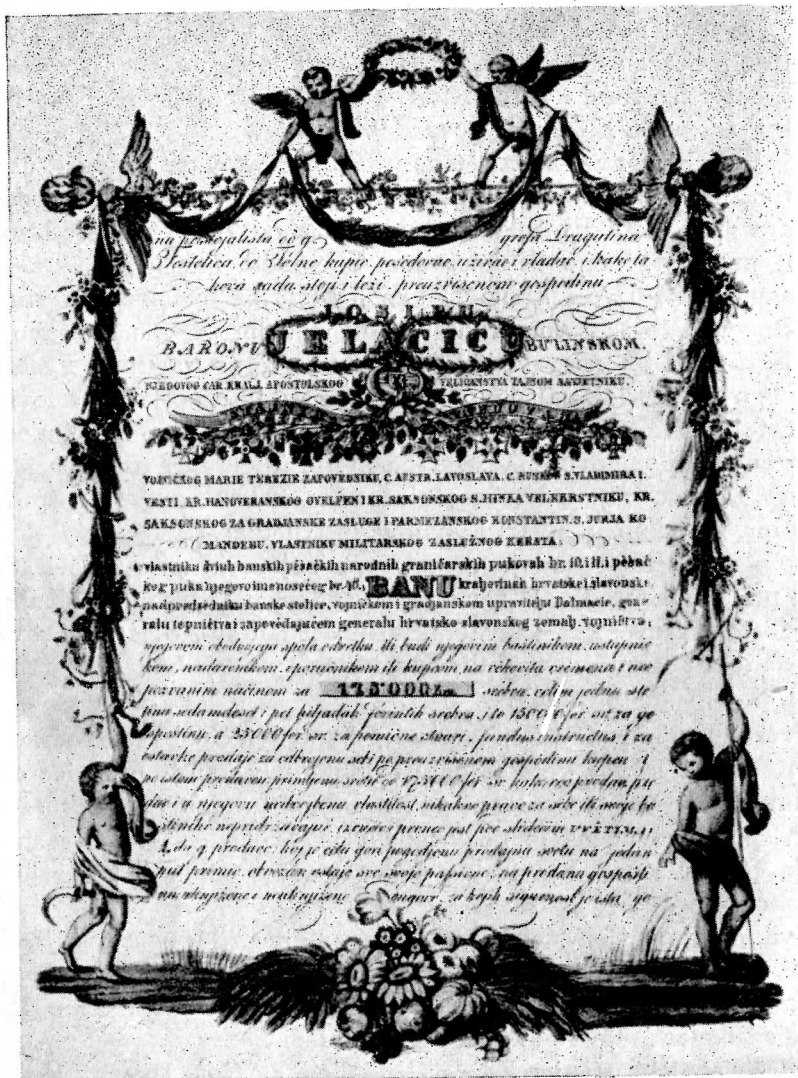 nu possejalista od g. grofa Dragutina
kupio, posedovao, uživao i vladao, i kako ta
kova sada stoji i leži preuzvišenom gospodinu
JOSIPU
BARONU JELAČIĆU BUŽINSKOM.
NJEGOVOG CAR. KRALJ. APOSTOLSKOG VELIČANSTVA TAJNOM SAVJETNIKU.
VOJNIČKOG MARIE TEREZIE ZAPOVEDNIKU, C. AUSTR. LAVOSLAVA, C. RUSKOG S. VLADIMIRA I.
VRSTI, KR. HANOVERANSKOG GVELFEN I KR. SAKSONSKOG S. HINKA VELKKRSTNIKU, KR.
SAKSONSKOG ZA GRADJANSKE ZASLUGE I PARMEZANSKOG KONSTANTIN. S. JURJA KO
MANDERU, VLASTNIKU MILITARSKOG ZASLUŽNOG KRSTA:
vlastniku dviuh banskih pěšačkih narodnih graničarskih pukovah br. 10. i 11. i pěšač
kog puka njegovo ime nosećeg br. 46., BANU kraljevinah hrvatske i slavonske
nadpredsědniku banske stolice, vojničkom i gradjanskom upravitelju Dalmacie, gene
ralu topničtva i zapovědajućem generalu hrvatsko slavonskog zemalj. vojničtva,
njegovom obodvojega spola odvětku, ili budi njegovim baštinikom, ustupnie
kom, nadarenikom, oporučnikom ili kupcom, na věkovita vrěmena i neo
pozvanim načinom za 175000 for. srebra, velim jednu sto
tina sedamdeset i pet hiljadah forintih srebra, i to 150000 for. sr. za go
spoštinu, a 25000 for. sr. za pomične stvari, fundus instructus, i za
ostavke prodaje za odbrojenu sebi po preuzvišenom gospodinu kupcu i
po istom prodavcu primljenu svotu od 175000 for. sr. kakoti ovo prodao, pre
dao i u njegovu nedvojbenu vlastitost, nikakvo pravo za sebe ili svoje ba
štinike nepridržavajuć, izručio i prenео jest pod slědećimi UVĚTIMI:
1. da g. prodavac, koj je cělu gori pogodjenu prodajnu svotu na jedan
put primio, obvezan ostaje sve svoje pasivne, na prodanu gospošti
nu uknjižene i neuknjižene dugove, za kojih sigurnost je ista go